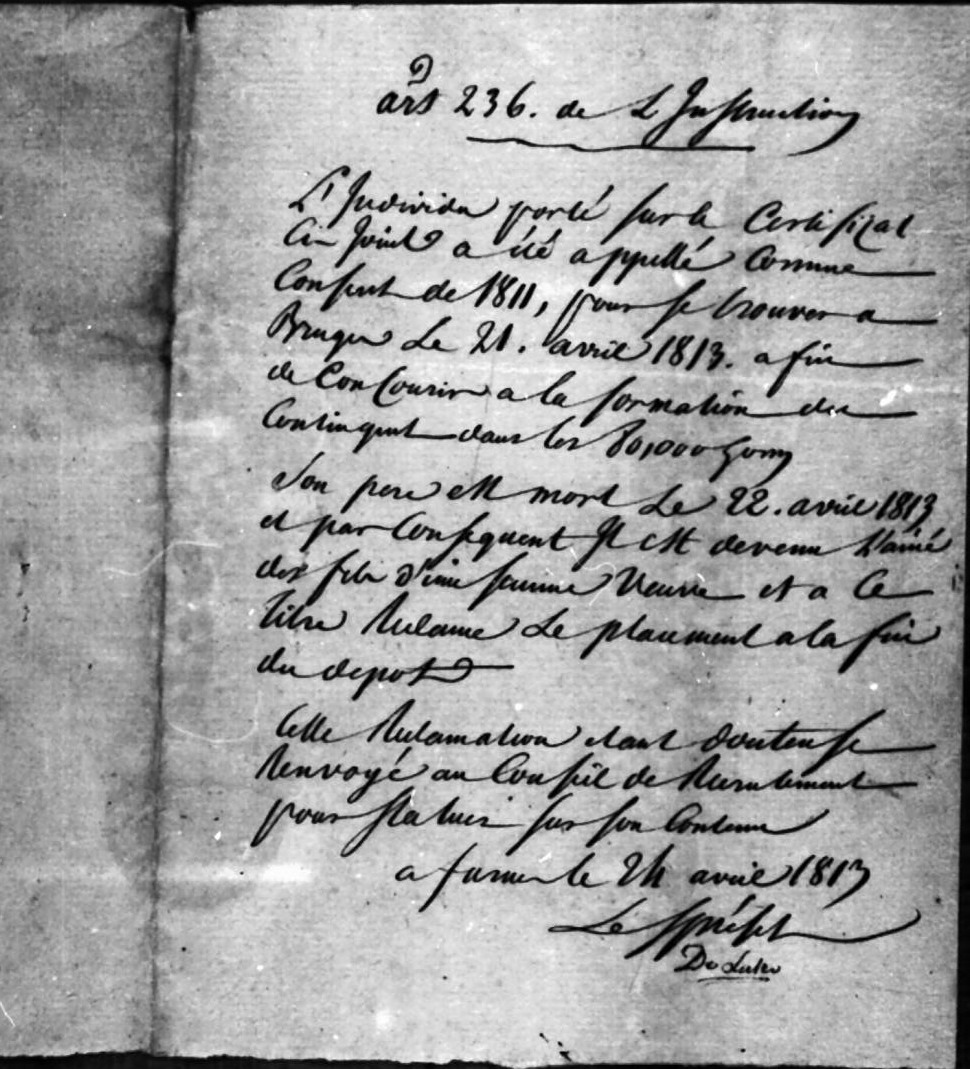 art 236. de L'Instruction
L'Individu porté sur le Certificat
Ci-Joint a été appellé Comme
Conscrit de 1811, pour se trouver a
Bruges Le 21. avril 1813. afin
de Concourir a la formation du
Contingent dans les 80,000 hom̃
Son pere est mort Le 22. avril 1813
et par Consequent Il est devenu L'ainé
des fils d'une femme Veuve et a Ce
titre Reclame Le placement a la fin
du depot
Cette Reclamation etant douteuse
Renvoyé au Conseil de Recrutement
pour statuer sur son Contenu
a furnes le 24 avril 1813
Le SPréfet